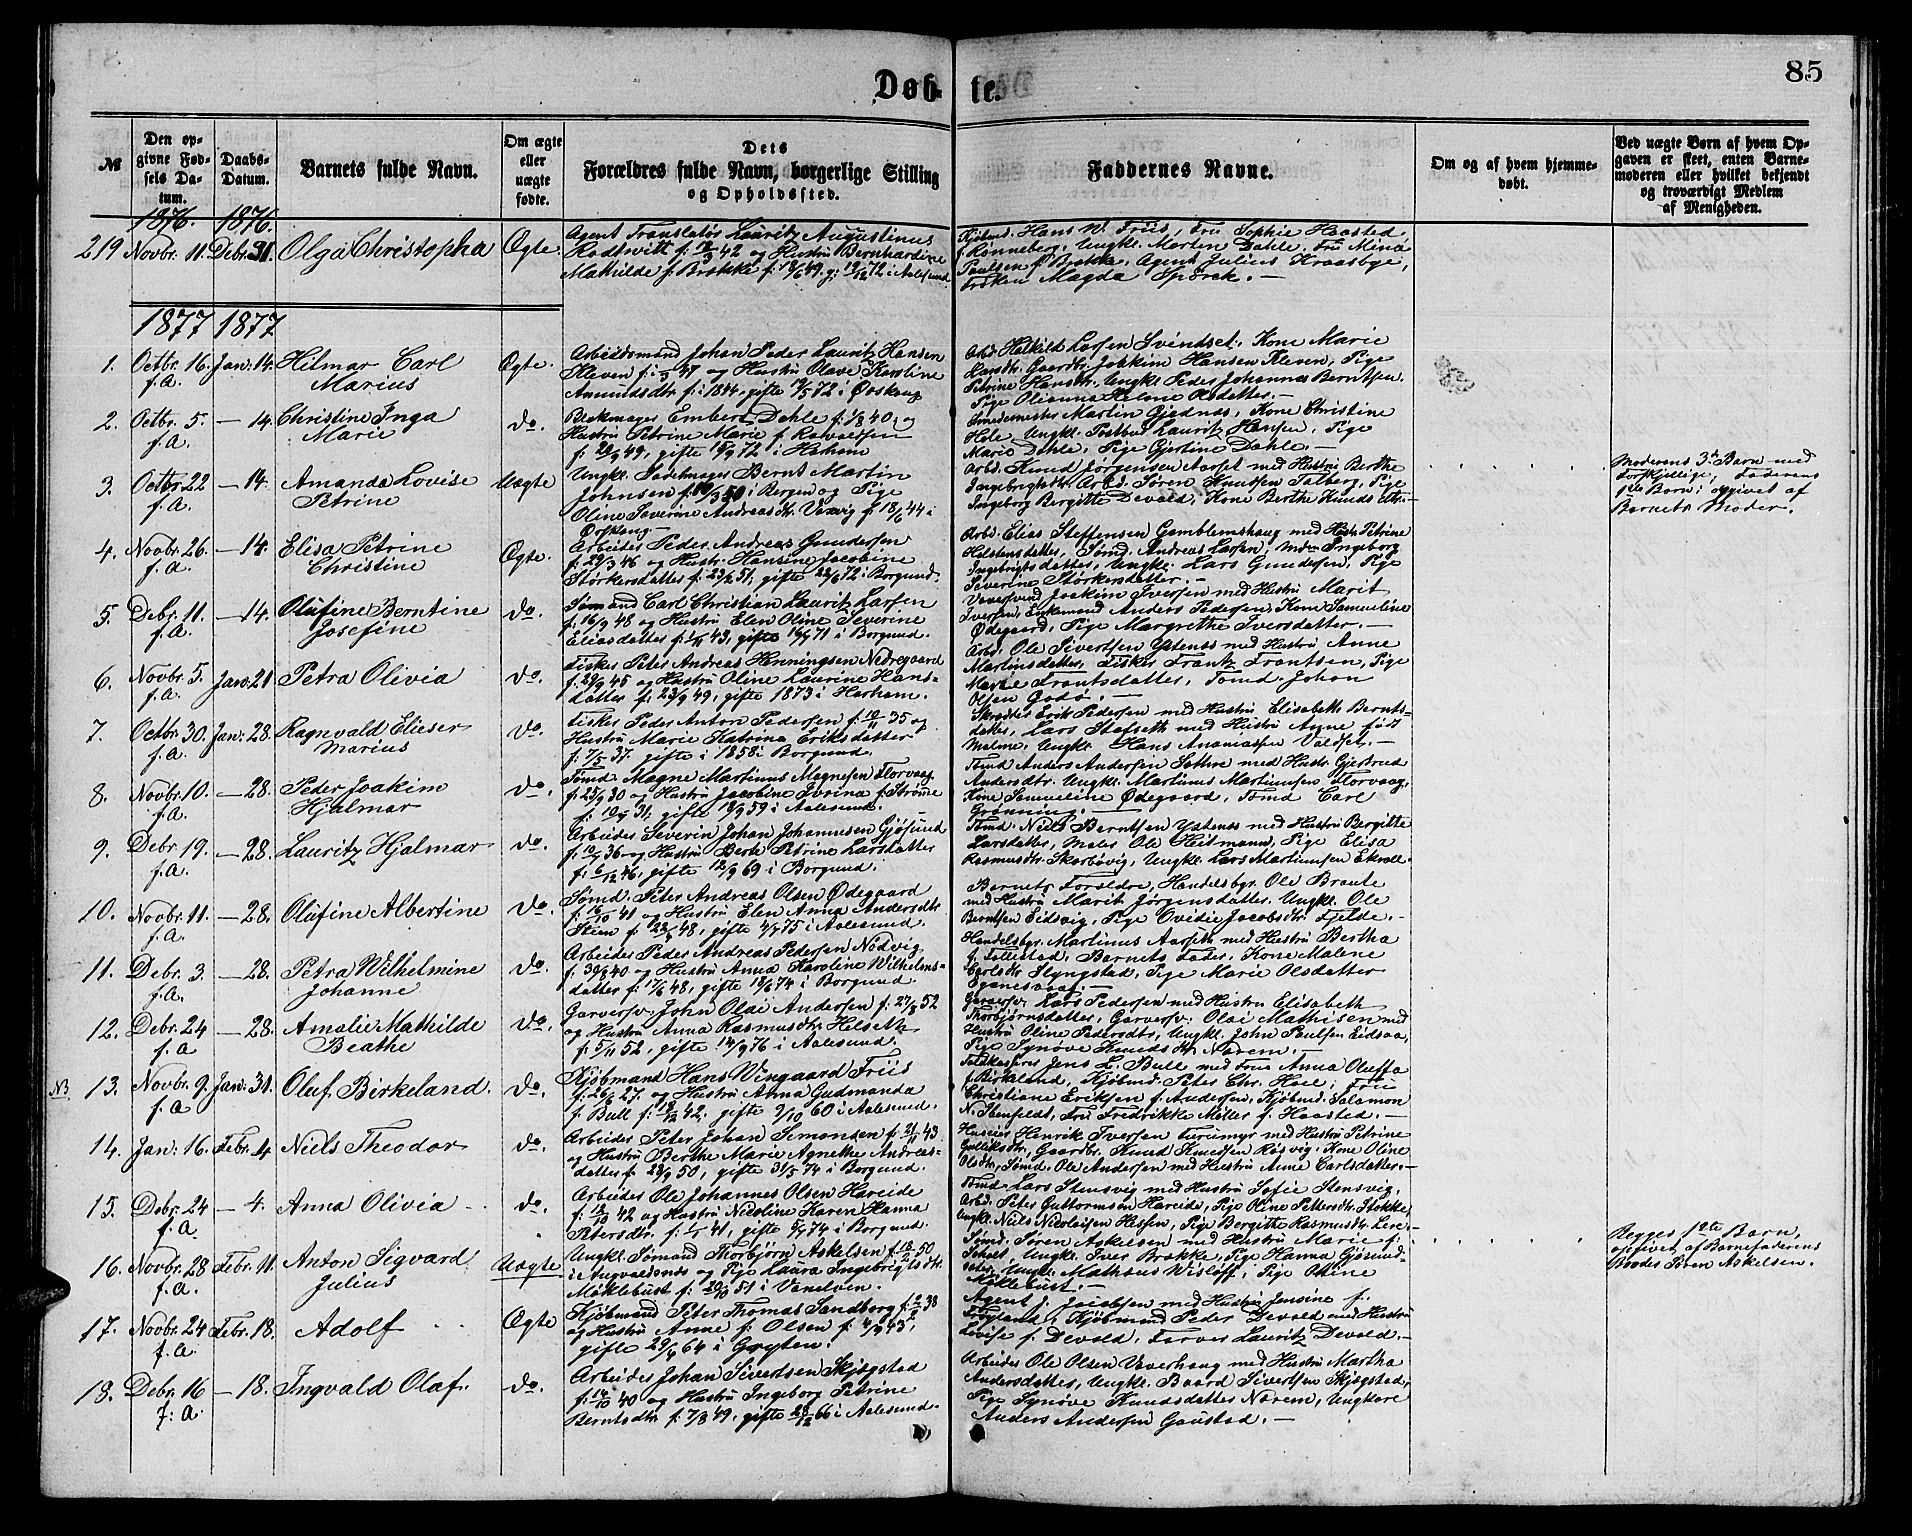 85
Døb- te.
№
Den opgivne Fødsels Datum.
Daabs-Datum.
Barnets fulde Navn.
Om ægte eller uægte fødte.
Dets Forældres fulde Navn, borgerlige Stilling og Opholdssted.
Faddernes Navne.
Om og af hvem hjemmedøbt.
Ved uægte Børn af hvem Opgaven er skeet, enten Barnemoderen eller hvilket bekjendt og troværdigt Medlem af Menigheden.
1876. 1876.
219 Novbr. 11. Debr. 31. Olga Christopha Ægte.
Agent Translatør Lauritz Augustinus
Mathilde f. Brokke
i Aalesund
Kjøbmd. Hans W. Friis, Fru Sophie Haasted
f. Rønneberg, Ungkl. Morten Dahle, Fru Mina
Paulsen f. Brokke, Agent Julius Kraasbye,
Frøken Magda Spørck. —
1877 1877
1. Octbr. 16. f.A. Jan: 14. Hilmar Carl Marius Ægte.
Arbeidsmand Johan Peder Lauritz Hansen
Kleven og Hustru Olave Karoline
Amundsdtr f: 1844, gifte 19/5 72 i Ørskoug
Petrine Hansdtr. Ungkl. Peder Johannes Berntsen.
2. Octbr. 5. f.A. — 14. Christine Inga Marie do.
Hustru Petrine Marie f.
gifte 15/9 72 i Harham
Smedemester Martin Gjednæs, Kone Christine
Hole, Ungkl. Postbud Lauritz Hansen, Pige
Marie Dahle, Pige Gjertine Dahle. —
3. Octbr. 22 f.A. — 14. Amanda Lovise Petrine Uægte
Ungkl. Sadelmager Bernt Martin
Johnsen i Bergen og Pige
Oline Severine Andreasdtr. f: 18/6 44 i
Ørskoug
Arbd. Knud Jørgensen Aarset med Hustru Berthe
Ingebrigtsdtr. Arbd. Søren Knutsen Solberg, Pige
Ingeborg Bergitte Devold, Kone Berthe Knudsdtr. —
Moderens 3die Barn med
Forskjellige, Faderens
1ste Barn; opgivet af
Barnets Moder.
4. Novbr. 26. f.A. — 14. Elisa Petrine Christine Ægte.
Arbeider Peder Andreas Gundersen
f: 29/3 46 og Hustr. Hansine Jacobine
Størkersdatter f: 23/8 51, gifte 72 i Borgund.
Arbd. Elias Steffensen Gamblemshaug med Hustr. Petrine
Ingebrigtsdatter, Ungkl. Lars Gundersen, Pige
Severine Størkersdatter. —
5. Debr. 11. f.A. — 14. Olufine Berntine Josefine do.
Sømand Carl Christian Lauritz Larsen
f: 16/9 48 og Hustru Elen Oline Severine
Eliasdatter 43, gifte 71 i Borgund.
Joakim Iversen med Hustru Marit
Iversen, Enkemand Anders Pedersen, Kone Samueline
Ødegaard, Pige Margrethe Iversdatter. —
6. Novbr. 5. f.A. Jan: 21 Petra Olivia do.
Fisker Peter Andreas Henningsen Nedregaard
f: 29/9 45 og Hustru Oline Laurine Hansdatter
f: 23/9 49, gifte 1873 i Harham.
Arbd. Ole Sivertsen Ystenes med Hustru Anne
Martinsdatter, Fisker Frantz Frantsen, Pige
Marie Frantsdatter, Tømd. Johan
Olsen Godø. —
7. Octbr. 30. f.A. Jan: 28. Ragnvald Elieser Marius do.
Fisker Peder Anton Pedersen f: 10/11 35 og
Hustru Marie Katrina Eriksdatter
f: 7/5 37. gifte i 1858 i Borgund.
Skrædder Erik Pedersen med Hustru Elisabeth Berntsdatter,
Lars Stafseth med Hustru Anne født
Malme, Ungkl. Hans Ananiassen Valdset. —
8. Novbr. 10. f.A. — 28. Peder Joakim Hjalmar do.
Tømd. Magne Martinus Magnesen Florvaag
f: 25/9 30 og Hustru Jacobine Ivrina f. Strømme
gifte 18/9 59 i Aalesund.
Tømd. Anders Andersen Sættre med Hustr. Gjertrud
Andersdtr. Ungkl. Martinus Martinusen Florvaag,
Kone Samueline Ødegaard, Tømd. Carl
Grønning.
9. Debr. 19. f.A. — 28. Lauritz Hjalmar do.
Arbeider Severin Johan Johannesen Gjøsund
36 og Hustru Berte Petrine Larsdatter
46, gifte 12/9 69 i Borgund.
Tømd. Niels Berntsen Ystenes med Hustru Bergitte
Larsdatter, Maler Ole Heitmann, Pige Elisa
Rasmusdtr. Skorbøvig, Ungkl. Lars Martinusen Ekroll.
10. Novbr. 11. f.A. — 28. Olufine Albertine do.
Sømd. Peter Andreas Olsen Ødegaard
f: 16/10 41 og Hustru Elen Anna Andersdtr
Stem 48, gifte 75 i Aalesund.
Barnets Forældre, Handelsbgr. Ole Braute
med Hustru Marit Jørgensdatter, Ungkl. Ole
Berntsen Eidsvig, Pige Ovedie Jacobsdtr. Fjelde. —
11. Debr. 3. f.A. — 28. Petra Wilhelmine Johanne do.
Arbeider Peder Andreas Pedersen Nidvig
f. 30/8 40 og Hustru Anna Karoline Wilhelmsdatter
f: 17/6 48, gifte 18/6 74 i Borgund.
Handelsbgr. Martinus Aarseth med Hustru Bertha
f. Follestad, Barnets Fader, Kone Malene
Carlsdtr Slyngstad, Pige Marie Olsdatter
12. Debr. 24 f.A — 28. Amalie Mathilde Beathe do.
Garversv. John Olai Andersen f: 27/8 52
og Hustru Anna Rasmusdtr. Helseth
f: 5/11 52, gifte 14/9 76 i Aalesund.
Garversv. Lars Pedersen med Hustru Elisabeth
Thorbjørnsdatter, Garversv. Olai Mathisen med
Hustru Oline Pedersdtr, Ungkl. John Paulsen Eidsaa,
Pige Synøve Knudsdtr. Norem. —
NB 13. Novbr. 9. f.A Jan: 31. Oluf Birkeland. do.
Kjøbmand Hans Wingaard Friis
f: 26/8 27. og Hustru Anna Gudmanda
f. Bull 42, gifte 9/10 60 i Aalesund.
Toldkasserer Jens L. Bull med Frue Anna Oluffa
f. Birkeland, Kjøbmd. Peter Chr. Hoel, Frue
Christiane Eriksen f. Andersen, Kjøbmd. Salamon
N. Ibenfeldt, Fru Fredrikke Møller f. Haasted. —
14. Jan: 16. Febr. 4 Niels Theodor do.
Arbeider Peter Johan Simonsen f: 21/11 43
og Hustru Berthe Marie Agnethe Andreasdatter
f: 23/9 50, gifte 31/5 74 i Borgund.
Huseier Henrik Iversen Furumyr med Hustru Petrine
Gulliksdtr, Gaardbr. Knud Knudsen Røsvig, Kone Oline
Olsdtr, Sømd. Ole Andersen med Hustru Anne Carlsdatter. —
15. Debr. 24 f.A — 4. Anna Olivia do.
Arbeider Ole Johannes Olsen Hareide
f: 12/10 42 og Hustru Nicoline Karen Hanna
Petersdtr. 41, gifte 74 i Borgund.
Tømd. Lars Stensvig med Hustru Sofie Stensvig.
Arbd. Peter Guttormsen Hareide, Pige Oline Pettersdtr. Støkke,
Ungkl. Niels Nicolaisen Hessen, Pige Bergitte Rasmusdtr. Lere. —
16. Novbr. 28 f.A. Febr. 11. Anton Sigvard Julius Uægte
Ungkl. Sømand Thorbjørn Askelsen 50
i Augvaldsnæs og Pige Laura Ingebrigtsdtr.
Møklebust 51 i Vanelven.
Sømd. Søren Askelsen med Hustru Marie f.
Ungkl. Iver Brokke, Pige Hanna
Ungkl. Mathæus Wisløff, Pige Oline
Møklebust. —
Begges 1ste Barn,
opgivet af Barnefaderens
Broder Søren Askelsen.
17. Novbr. 24 f.A. Febr. 18. Adolf Ægte
Kjøbmand Peter Thomas Sandberg 38
og Hustru Anne f. Olsen f: 4/9 43,
gifte 64 i Gryten.
Agent J. Jacobsen med Hustru Jensine f.
Frøyland, Kjøbmand Peder Devold med Hustru
Lovise f. Devold, Farver Lauritz Devold. —
18. Debr. 16 f:A. — 18. Ingvald Olaf. do.
Arbeider Johan Sivertsen Skjegstad
f: 14/10 40 og Hustru Ingeborg Petrine
Berntsdtr. f: 7/8 49, gifte 66 i Aalesund.
Arbeider Ole Olsen Vaverhaug med Hustru Martha
Andersdatter, Ungkl. Baard Sivertsen Skjegstad,
Pige Synøve Knudsdatter Norem, Ungkare
Anders Andersen Goustad. —